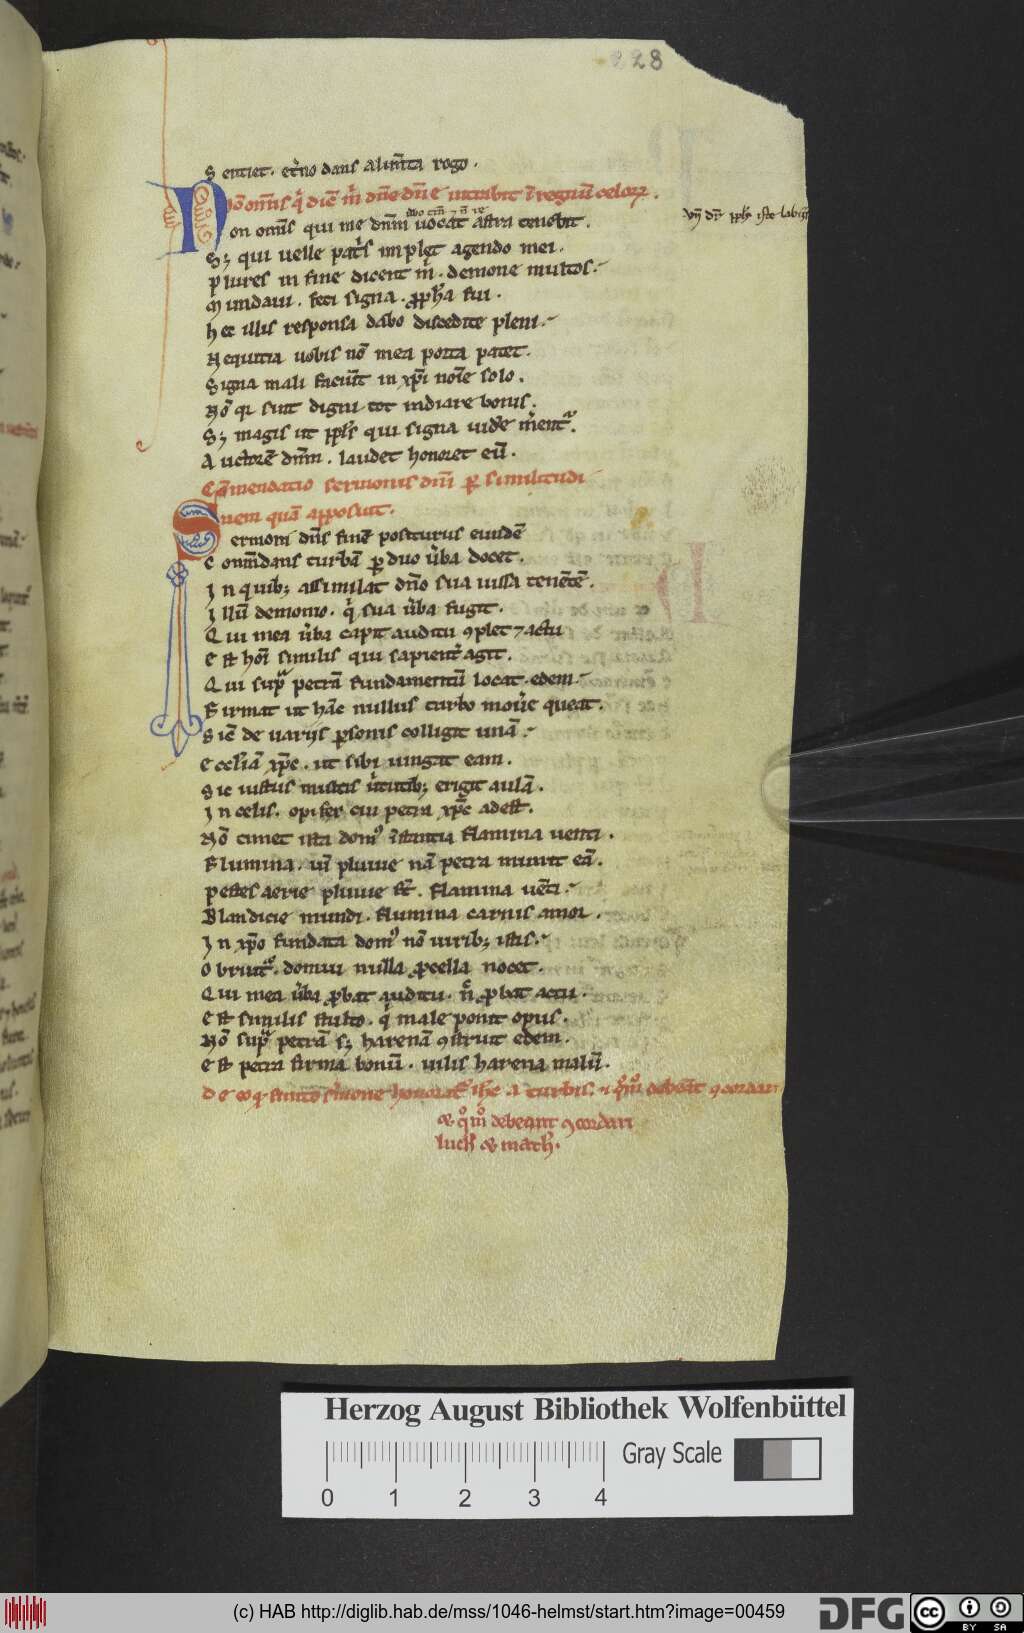 228
S entiet. et̾no dans alim̅ta rogo.
Nō om̅is q̇ dic̅ m̅ dn̅e dn̅e intrabit ī regnum celoꝝ.
N on om̅s qui me dn̅m uocat astra tenebit.
S; qui uelle pat̾s implet agendo mei.
P lures in fine dicent m̅. demone multos.
M undaui. feci signa. ꝓph̅a fui.
H ec illis responsa dabo discedite pleni.
N equitia uobis nō mea porta patet.
S igna mali faciūt in xp̅i noīe solo.
N ō qr sunt digni tot indiare bonis.
S; magis ut ppl̅s qui signa uid̾e m̾ent᷑.
A uctorē dn̅m. laudet honoret eū.
Cōmendatio sermonis dn̅i ꝑ similitudi
nem quā apposuit.
S ermoni dn̅s finē positurus eiusdē
C om̅dans turbā ꝑ duo ūba docet.
I n quib; assimilat dn̅o sua iussa tenētē.
I llū demonio. q̇ sua ūba fugit.
Q ui mea ūba capit auditu ꝯplet ⁊ actu
E st hoī similis qui sapient̾ agit.
Q ui supᵃ petrā fundamentū locat edem.
F irmat ut hāc nullus turbo mou̾e queat.
S ic̅ de uarijs ꝑsonis colligit unā.
E ccl̅iam xp̅c. ut sibi iungat eam.
S ic iustus multis ūtutib; erigit aulā.
I n celis. opifex cui petra xp̅c adest.
N ō timet ista domꝰ īstantia flamina uenti.
F lumina. ul̅ pluuie nā petra munit eā.
P estes aerie pluuie st̅. flamina uēti.
B landicie mundi. flumina carnis amor.
I n xp̅o fundata domꝰ nō uirib; istis.
O bruit᷑. domui nulla ꝓcella nocet.
Q ui mea ūba ꝓbat auditu. n̅ ꝓbat actu.
E st similis stulto. q̇ male ponit opus.
N ō supᵃ petrā s; harenā ꝯstruit edem.
E st petra firma bonū. uilis harena malū.
& qͦm̅o debeant ꝯcordari
luch̅ & math̅.
Herzog August Bibliothek Wolfenbüttel
Gray Scale
0 1 2 3 4
(c) HAB http://diglib.hab.de/mss/1046-helmst/start.htm?image=00459
DFG cc BY SA